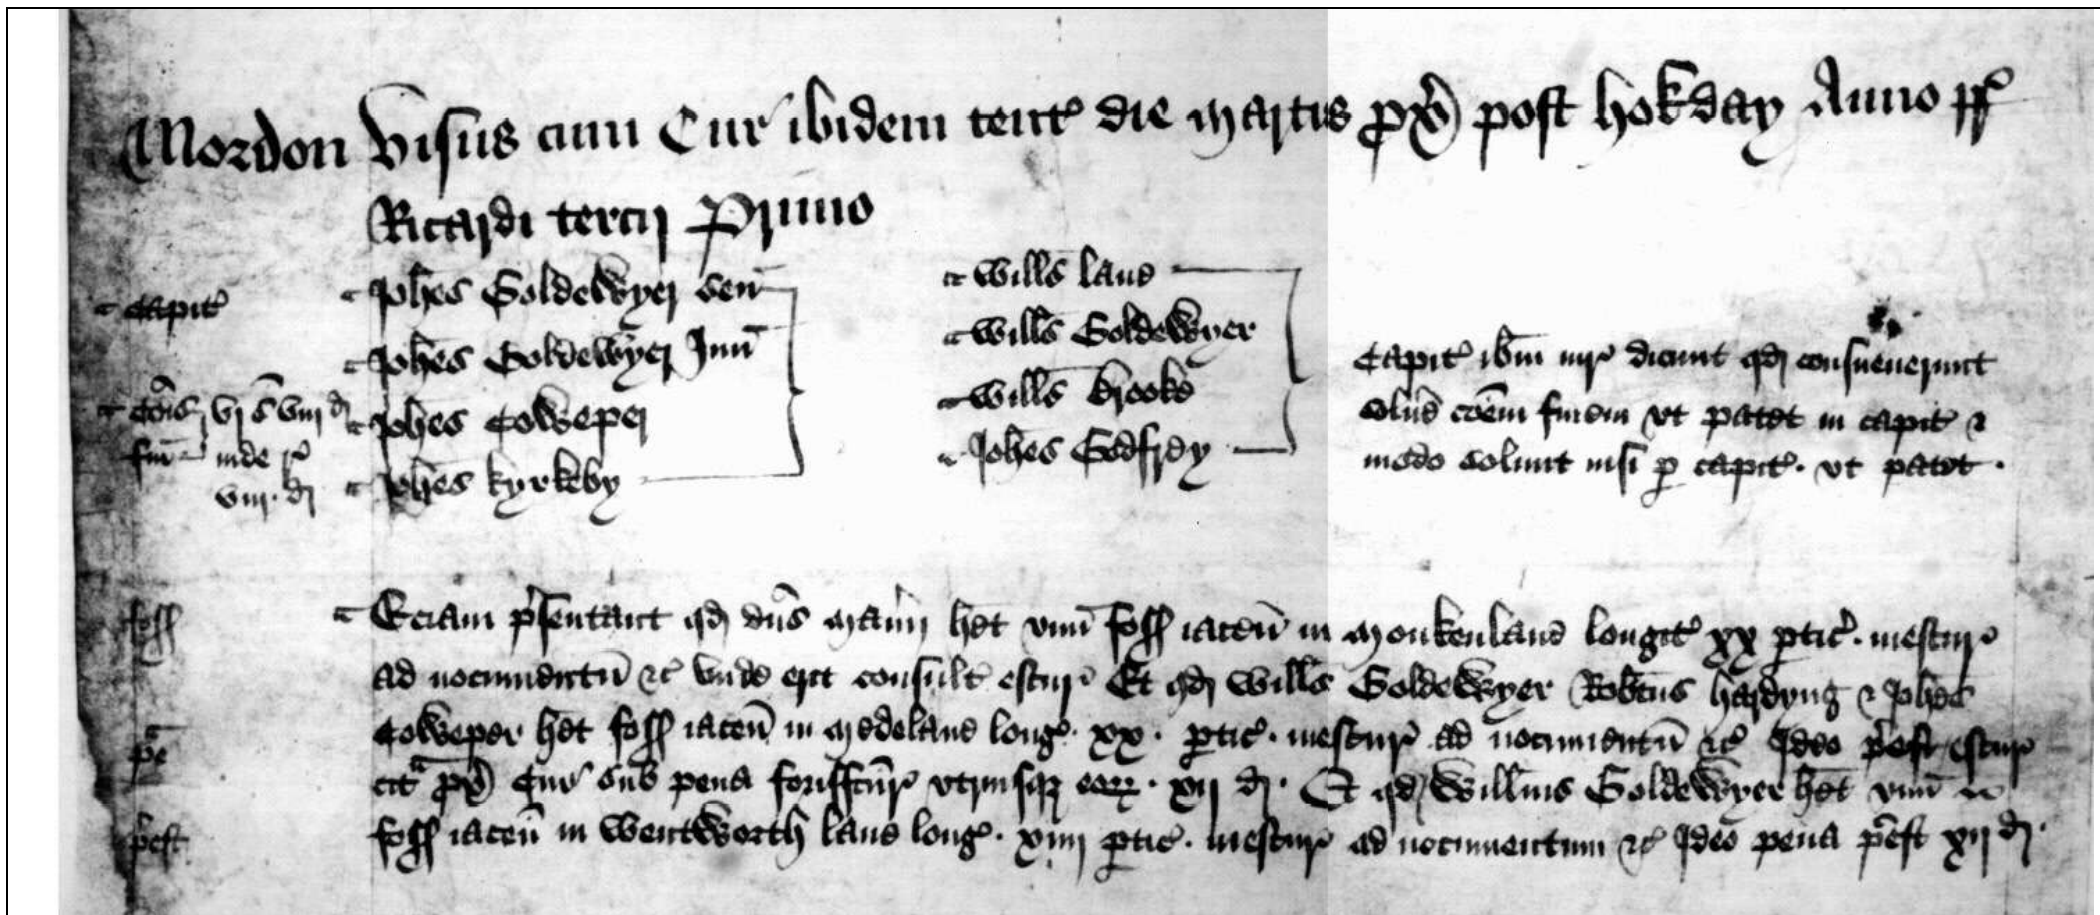 Mordon Visus cum Cur ibidem tent die martis px post hokday Anno rr
Ricardi tercij Primo
Capit
Johes Goldewyer sen
Johes Goldewyer Jun
Cois vj s viij d
Johes Coweper
fin inde r
viij d
Johes kyrkeby
Wills land
Wills Goldewyer
Wills Brooke
Johes Godfrey
Capit ibm iur dicunt qd consueuerunt
solue coem finem vt patet in capit &
modo soluunt nisi p capit vt patet
foss
Eciam psentant qd dns manij het vnu foss iacen in Monkenland longit xx ptic mescur
ad nocumentu &c vnde erit consult escur Et qd Wills Goldewyer Robtus hardyng & Johes
Coweper het foss iacen in Medeland long xx ptic mescur ad nocumentu &c Ideo pcept escur
pe
cit px Cur sub pena forisfctur vtriusqz eorr xij d Et qd Willms Goldewyer het vnu
pcept
foss iacen in Wentworth land long xiiij ptic mescur ad nocumentum &c Ideo pena pcept xij d